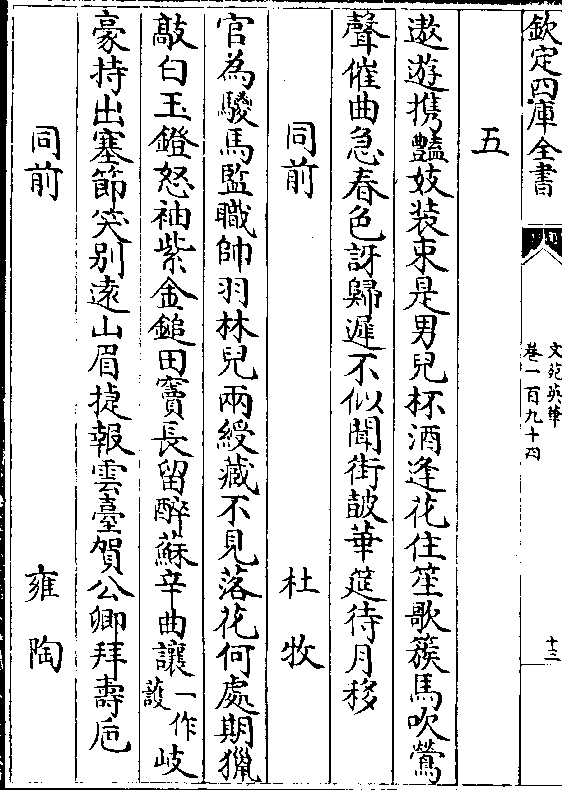 欽定四庫全書
文苑英華
卷一百九十四
十三
五
遨遊携豔妓裝束是男兒杯酒逢花住笙歌簇馬吹鶯
聲催曲急春色訝歸遲不似聞街鼓華筵待月移
同前 杜牧
官為駿馬監職帥羽林兒兩綬藏不見落花何處期獵
敲白玉鐙怒袖紫金鎚田竇長留醉蘇辛曲讓一作護岐
豪持出塞節笑别遠山眉捷報雲臺賀公卿拜壽巵
同前 雍陶